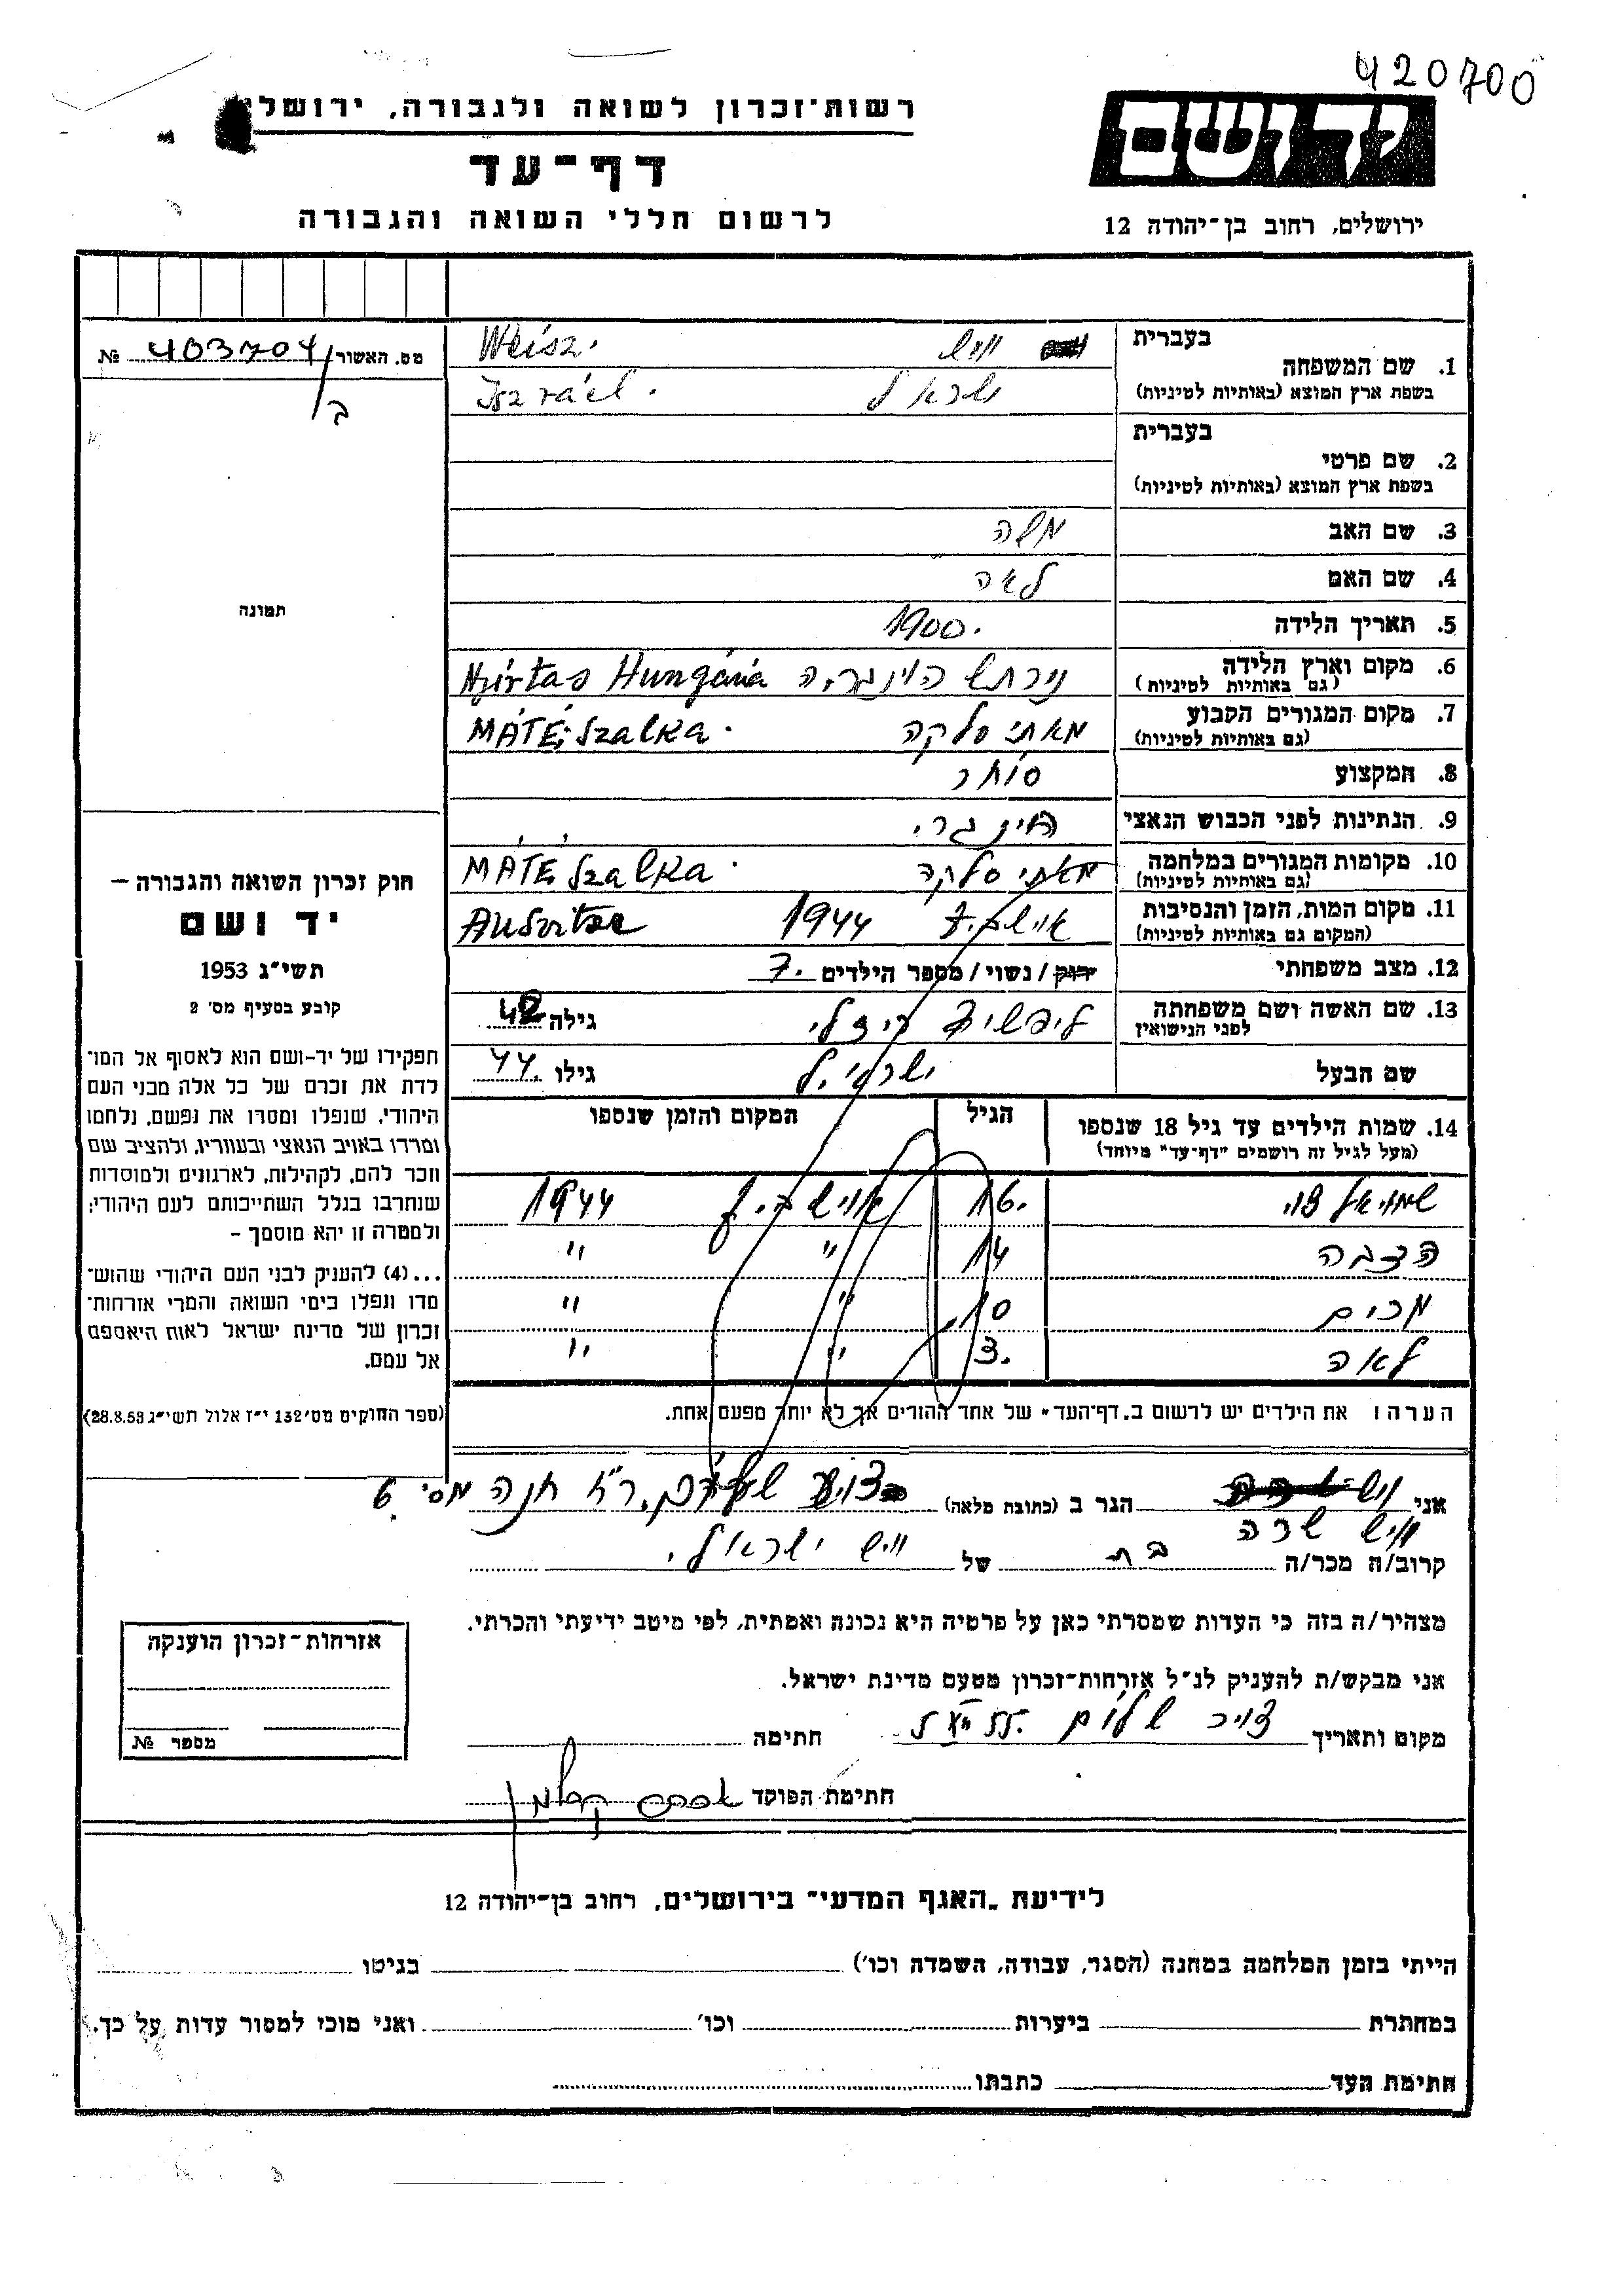 420700
רשות־זכרון לשואה ולגבורה, ירושלי
דף־עד
לרשום חללי השואה והגבורה
יד ושם
ירושלים, רחוב בן־יהודה 12
מס. האשור 403704 №
ב/
בעברית
1. שם המשפחה
בשפת ארץ המוצא (באותיות לטיניות)
וייש Weisz.
ישראל Iszráel.
בעברית
2. שם פרטי
בשפת ארץ המוצא (באותיות לטיניות)
3. שם האב משה
4. שם האם לאה
5. תאריך הלידה 1900.
6. מקום וארץ הלידה
(גם באותיות לטיניות)
נירתש הוינגריה Nyírtas Hungária
7. מקום המגורים הקבוע
(גם באותיות לטיניות)
מאתי סלקה MÁTÉ Szalka.
8. המקצוע סוחר
9. הנתינות לפני הכבוש הנאצי הוינגרי.
10. מקומות המגורים במלחמה
(גם באותיות לטיניות)
מאתי סלקה MÁTÉ Szalka.
11. מקום המות, הזמן והנסיבות
(המקום גם באותיות לטיניות)
1944
12. מצב משפחתי רווק / נשוי / מספר הילדים 7.
13. שם האשה ושם משפחתה
לפני הנישואין
ליפשיץ ריזלי גילה 42
שם הבעל ישראל גילו 44.
14. שמות הילדים עד גיל 18 שנספו
(מעל לגיל זה רושמים "דף־עד" מיוחד)
הגיל המקום והזמן שנספו
שמואל צבי 16. 1944
14 " "
מרים 10 " "
לאה 3. " "
הערה: את הילדים יש לרשום ב„דף־העד" של אחד ההורים אך לא יותר מפעם אחת.
תמונה
חוק זכרון השואה והגבורה —
יד ושם
תשי"ג 1953
קובע בסעיף מס' 2
תפקידו של יד־ושם הוא לאסוף אל המו־
לדת את זכרם של כל אלה מבני העם
היהודי, שנפלו ומסרו את נפשם, נלחמו
ומרדו באויב הנאצי ובעוזריו, ולהציב שם
וזכר להם, לקהילות, לארגונים ולמוסדות
שנחרבו בגלל השתייכותם לעם היהודי;
ולמטרה זו יהא מוסמך —
...(4) להעניק לבני העם היהודי שהוש־
מדו ונפלו בימי השואה והמרי אזרחות־
זכרון של מדינת ישראל לאות היאספם
אל עמם.
(ספר החוקים מס' 132 י"ז אלול תשי"ג 28.8.53)
אני הגר ב (כתובת מלאה) רח חנה 6
וייש שרה
קרוב/ה מכר/ה בת של וייש ישראל.
מצהיר/ה בזה כי העדות שמסרתי כאן על פרטיה היא נכונה ואמתית, לפי מיטב ידיעתי והכרתי.
אני מבקש/ת להעניק לנ"ל אזרחות־זכרון מטעם מדינת ישראל.
מקום ותאריך חתימה
חתימת הפוקד
אזרחות־זכרון הוענקה
מספר №
לידיעת „האגף המדעי" בירושלים, רחוב בן־יהודה 12
הייתי בזמן המלחמה במחנה (הסגר, עבודה, השמדה וכו') בגיטו
במחתרת ביערות וכו' ואני מוכן למסור עדות על כך.
חתימת העד כתבתו